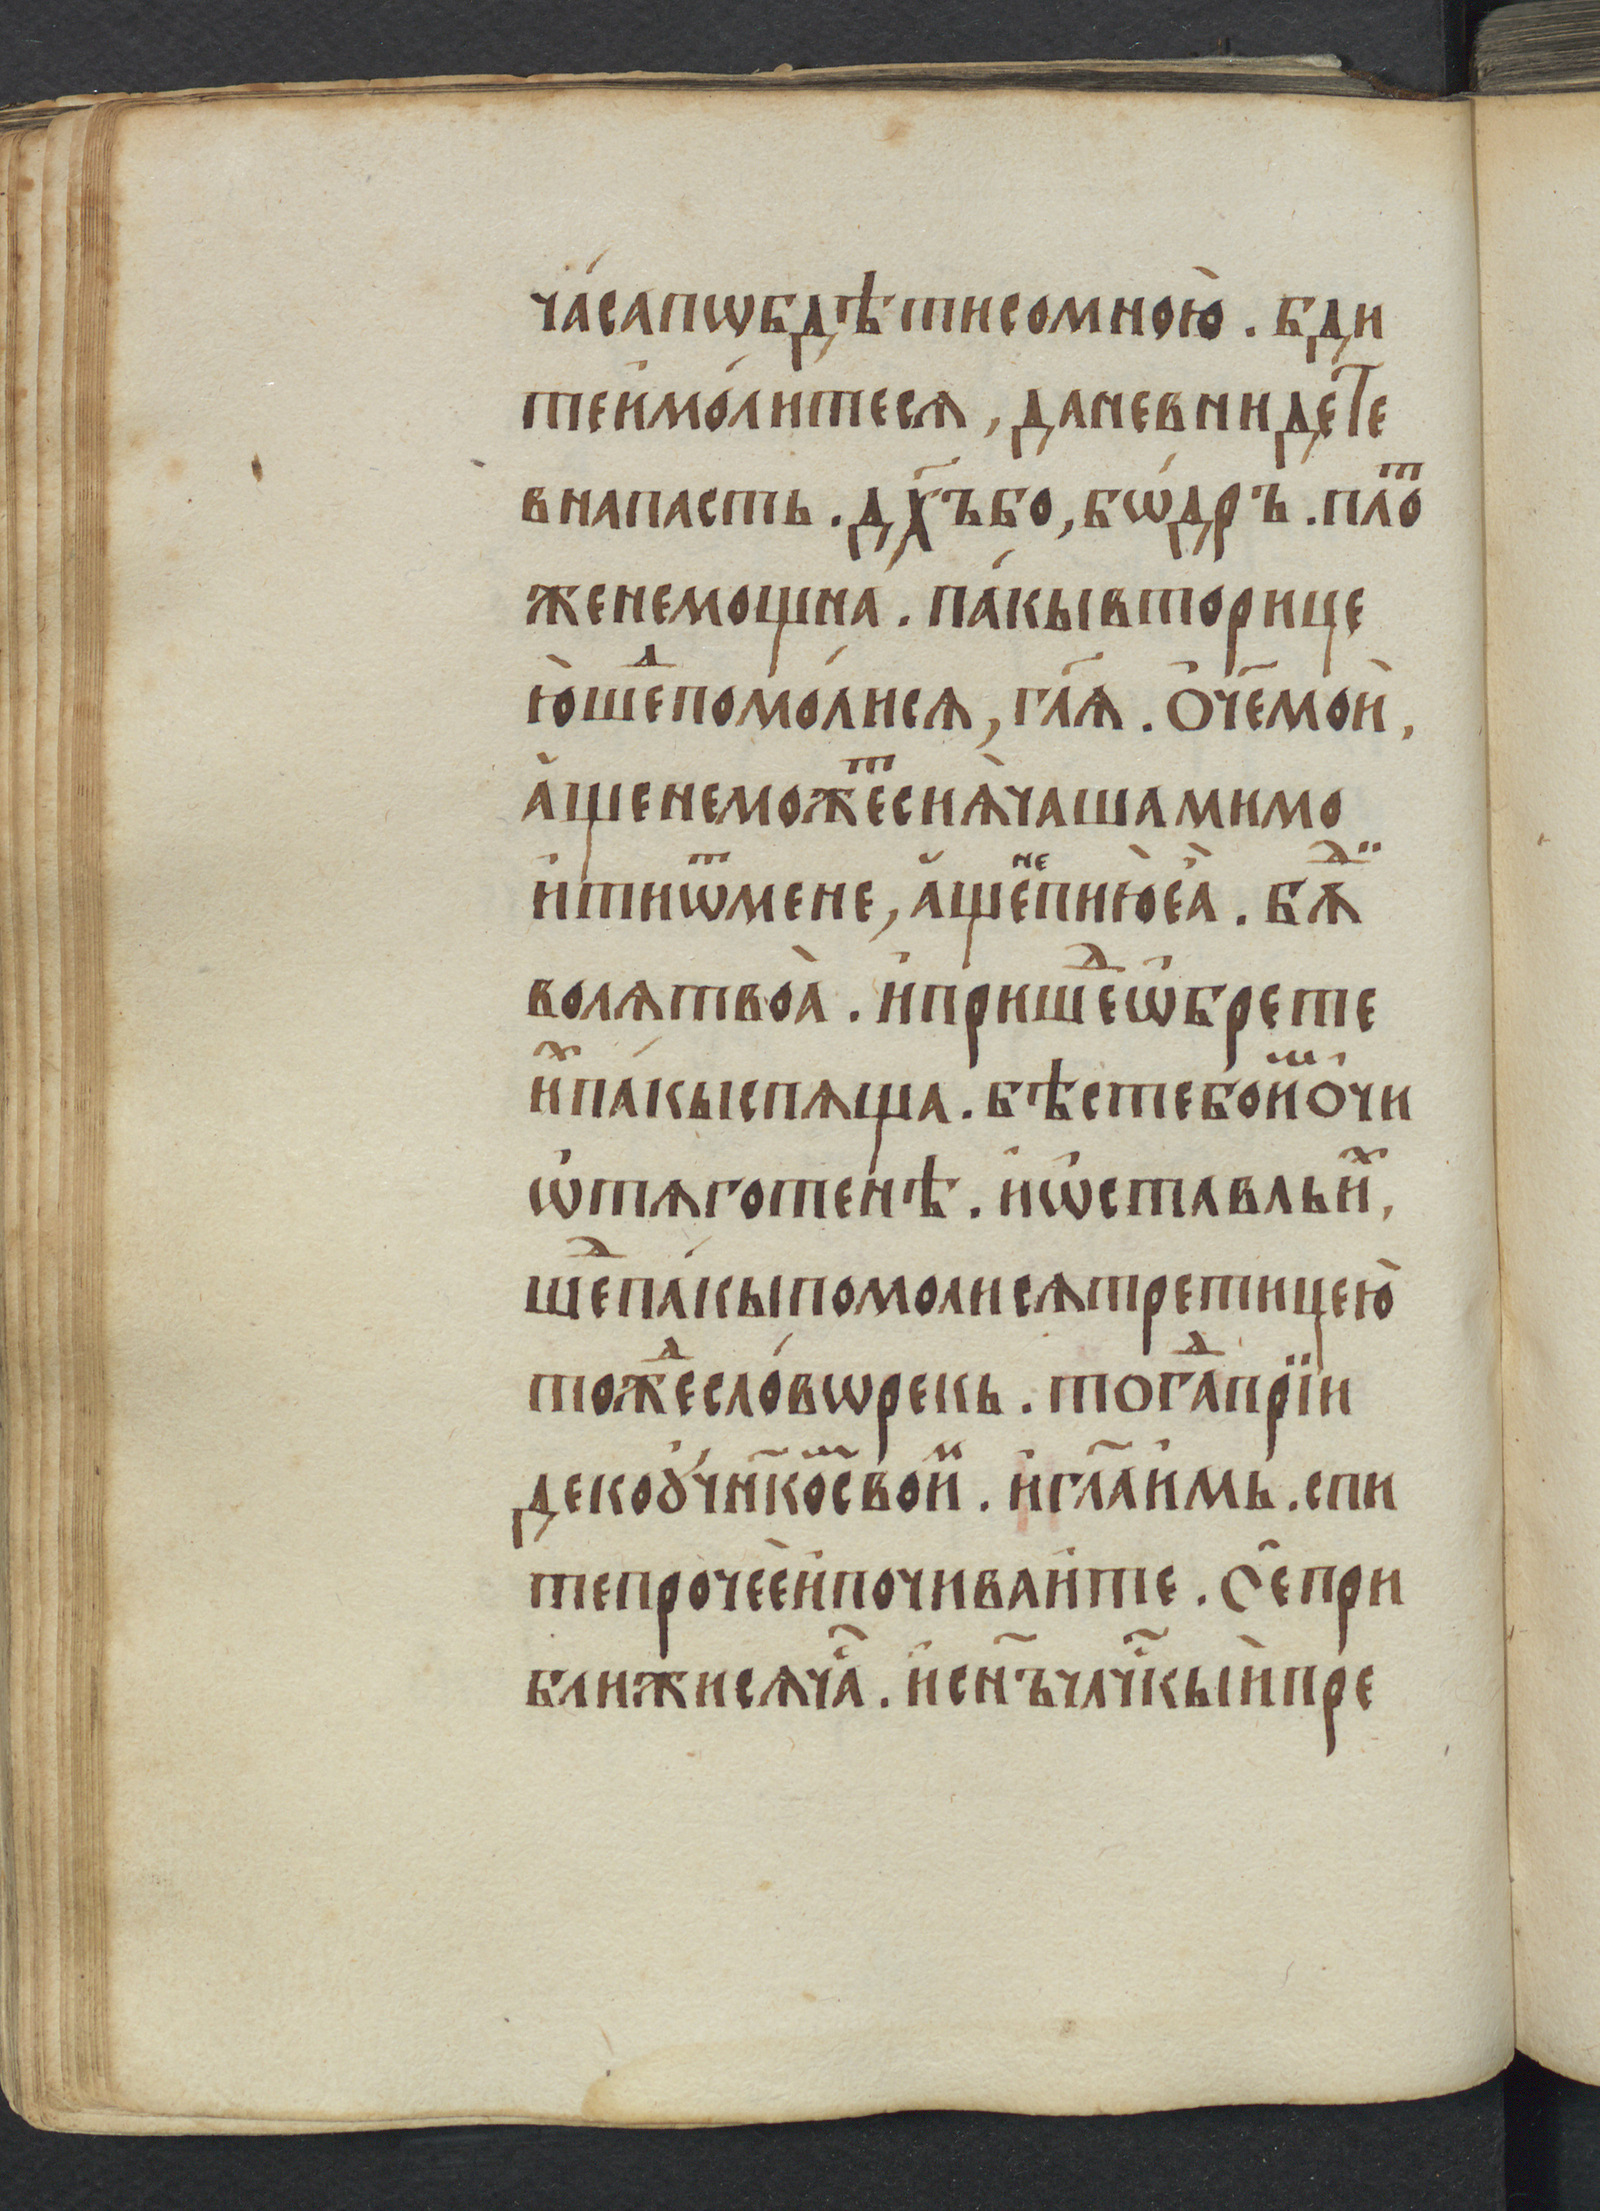 ча́сапѡбдѣтисомною̀. бди
теи҆мо́литеся, даневнидѐте
внапасть. дх҃ъбо, бѡ́дръ. плоⷮ
женемощна̀. па́кывторице
ю҆шеⷣпомо́лися, гл҃ѧ. ѻ҆ч҃емои̇,
а҆̀щенеможеⷮсиѧ̀чашамимо
и҆тиѿмене, а҆̀щенⷷепию̀є҆ѧ̀. бꙋⷣ
волѧтвоѧ̀. и҆пришеⷣѡ҆брете
и҆ⷯпа́кыспѧща. бѣстебои҆ⷨѻ҆чи
ѡ҆тѧготенѣ. и҆ѡ҆ставльи҆ⷯ,
шеⷣпа́кыпомолисѧтретицею̀
тожⷣесло́вѡрекь. тогⷣапрїи
декоу҆чн҃коⷨсвои̇ⷨ. и҆гл҃аи҆мь. спи
тепрочеѐи҆почиваи҆те. Се҆при
ближисѧчⷭ҇а. и҆сн҃ъчл҃чⷭ҇кыи҆пре